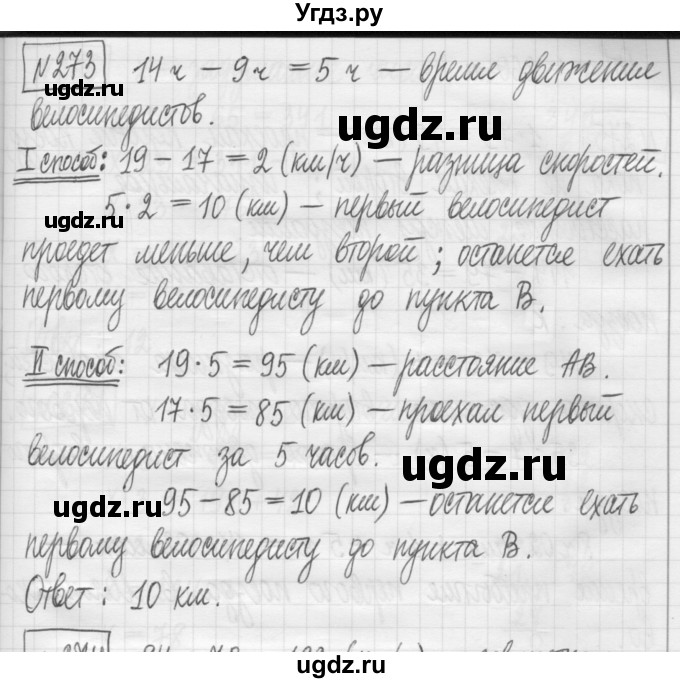 Угдз.ру
№273 14 ч – 9 ч = 5 ч — время движения
велосипедистов.
I способ: 19 – 17 = 2 (км/ч) — разница скоростей.
5·2 = 10 (км) — первый велосипедист
проедет меньше, чем второй; останется ехать
первому велосипедисту до пункта B.
II способ: 19·5 = 95 (км) — расстояние AB.
17·5 = 85 (км) — проехал первый
велосипедист за 5 часов.
95 – 85 = 10 (км) — останется ехать
первому велосипедисту до пункта B.
Ответ: 10 км.
ugdz.ru
ugdz.ru
ugdz.ru
ugdz.ru
ugdz.ru
ugdz.ru
ugdz.ru
ugdz.ru